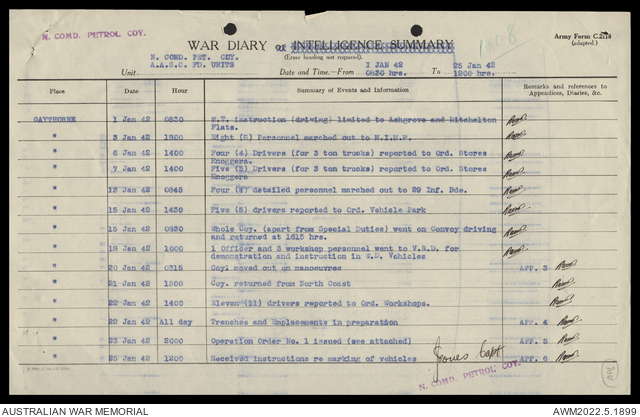 N. COMD. PETROL COY.
Army Form C.2118
(adapted.)
WAR DIARY OR INTELLIGENCE SUMMARY
1008
(Erase heading not required).
N. COMD. PET. COY.
A.A.S.C. FD. UNITS
Unit
Date and Time.—From 1 JAN 42 0830 hrs. To 25 Jan 42 1200 hrs.
Place Date Hour Summary of Events and Information Remarks and references to Appendices, Diaries, &c.
GAYTHORNE 1 Jan 42 0830 M.T. instruction (driving) limited to Ashgrove and Mitchelton
Flats.
" 3 Jan 42 1900 Eight (8) Personnel marched out to
" 6 Jan 42 1400 Four (4) Drivers (for 3 ton trucks) reported to Ord. Stores
Enoggera.
" 7 Jan 42 1400 Five (5) Drivers (for 3 ton trucks) reported to Ord. Stores
Enoggera
" 13 Jan 42 0845 Four (4) detailed personnel marched out to 29 Inf. Bde.
" 15 Jan 42 1430 Five (5) drivers reported to Ord. Vehicle Park
" 15 Jan 42 0830 Whole Coy. (apart from Special Duties) went on Convoy driving
and returned at 1615 hrs.
" 18 Jan 42 1000 1 Officer and 3 workshop personnel went to V.R.D. for
demonstration and instruction in W.D. Vehicles
" 20 Jan 42 0315 Coy. moved out on manoeuvres APP. 3
" 21 Jan 42 1500 Coy. returned from North Coast
" 22 Jan 42 1400 Eleven (11) drivers reported to Ord. Workshops.
" 22 Jan 42 All day Trenches and Emplacements in preparation APP. 4
" 23 Jan 42 2000 Operation Order No. 1 issued (see attached) APP. 5
" 25 Jan 42 1200 Received instructions re marking of vehicles APP. 6
Jones Capt
N. COMD. PETROL COY.
AUSTRALIAN WAR MEMORIAL
AWM2022.5.1899